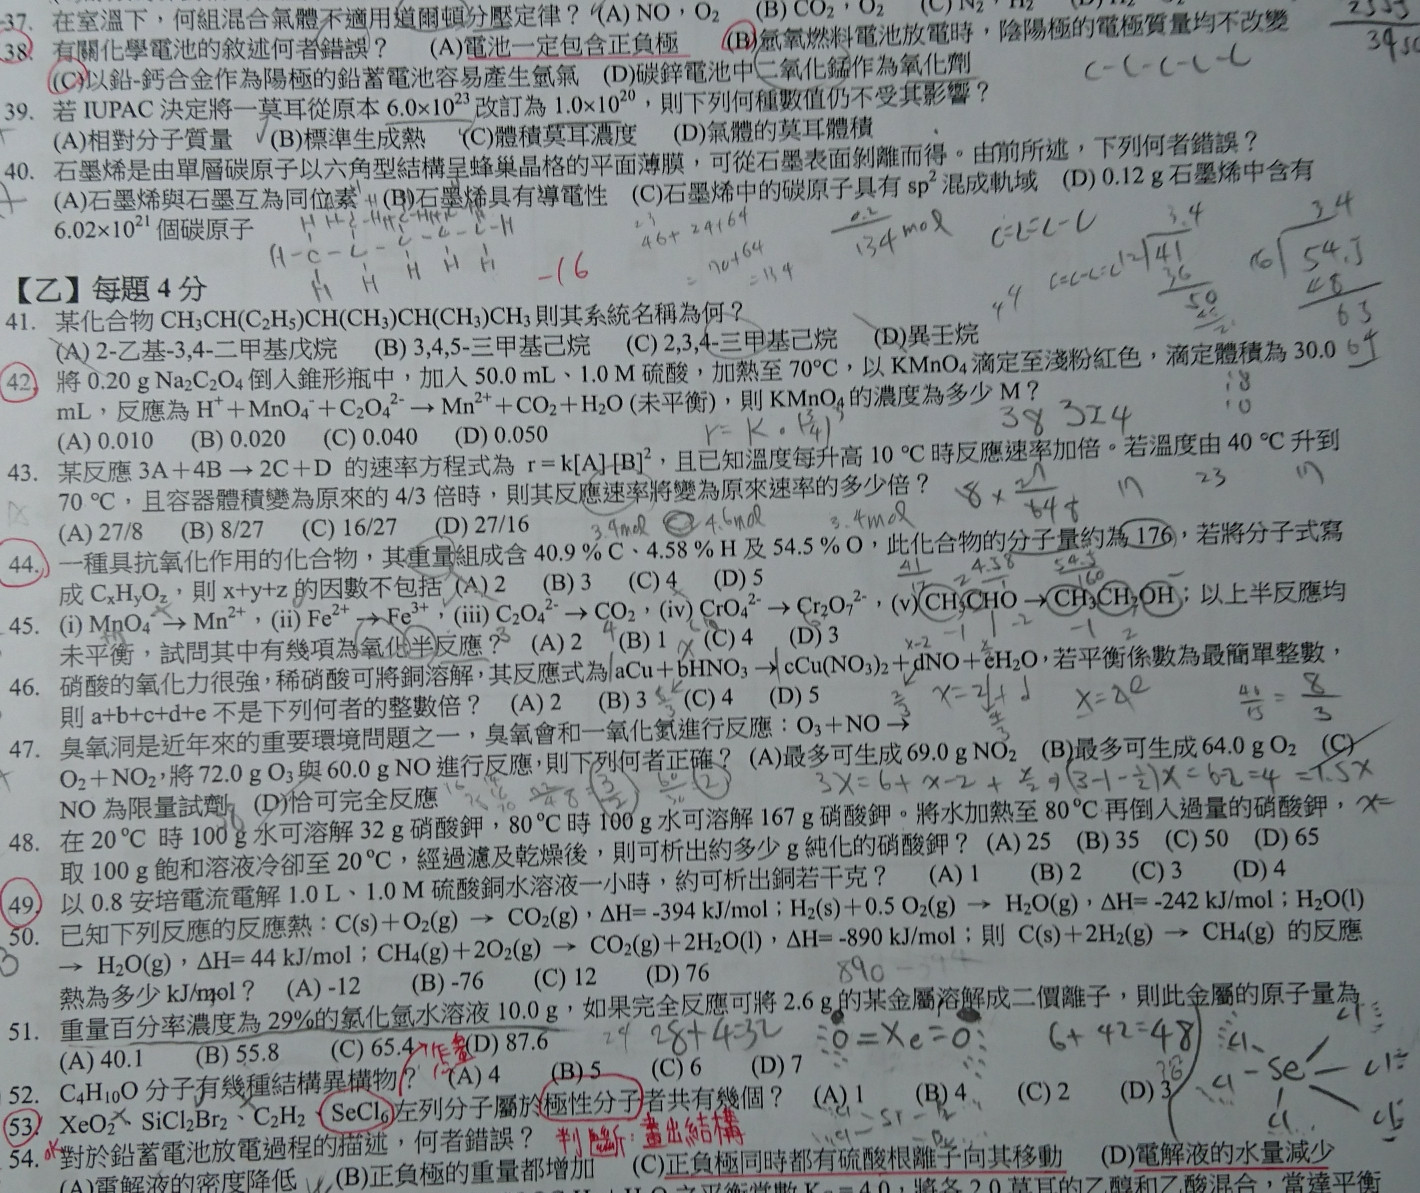 37. 在室溫下,何組混合氣體不適用道爾頓分壓定律? (A) NO,O₂ (B) CO₂,O₂ (C) N₂,H₂
38. 有關化學電池的敘述何者錯誤? (A)電池一定包含正負極 (B)氫氧燃料電池放電時,陰陽極的電極質量均不改變
(C)以鉛-鈣合金作為陽極的鉛蓄電池容易產生氫氣 (D)碳鋅電池中二氧化錳作為氧化劑
C-C-C-C-C
39. 若 IUPAC 決定將一莫耳從原本 6.0×10²³ 改訂為 1.0×10²⁰,則下列何種數值仍不受其影響?
(A)相對分子質量 (B)標準生成熱 (C)體積莫耳濃度 (D)氣體的莫耳體積
40. 石墨烯是由單層碳原子以六角型結構呈蜂巢晶格的平面薄膜,可從石墨表面剝離而得。由前所述,下列何者錯誤?
(A)石墨烯與石墨互為同位素 (B)石墨烯具有導電性 (C)石墨烯中的碳原子具有 sp² 混成軌域 (D) 0.12 g 石墨烯中含有
6.02×10²¹ 個碳原子
46+24+64
=70+64
=134
0.2/134 mol
-16
【乙】每題 4 分
41. 某化合物 CH₃CH(C₂H₅)CH(CH₃)CH(CH₃)CH₃ 則其系統名稱為何?
(A) 2-乙基-3,4-二甲基戊烷 (B) 3,4,5-三甲基己烷 (C) 2,3,4-三甲基己烷 (D)異壬烷
42. 將 0.20 g Na₂C₂O₄ 倒入錐形瓶中,加入 50.0 mL、1.0 M 硫酸,加熱至 70°C,以 KMnO₄ 滴定至淺粉紅色,滴定體積為 30.0
mL,反應為 H⁺+MnO₄⁻+C₂O₄²⁻→Mn²⁺+CO₂+H₂O (未平衡),則 KMnO₄ 的濃度為多少 M?
(A) 0.010 (B) 0.020 (C) 0.040 (D) 0.050
38 324
43. 某反應 3A+4B→2C+D 的速率方程式為 r=k[A][B]²,且已知溫度每升高 10 °C 時反應速率加倍。若溫度由 40 °C 升到
70 °C,且容器體積變為原來的 4/3 倍時,則其反應速率將變為原來速率的多少倍?
(A) 27/8 (B) 8/27 (C) 16/27 (D) 27/16
3.4mol 4.6mol 3.4mol
44. 一種具抗氧化作用的化合物,其重量組成含 40.9 % C、4.58 % H 及 54.5 % O,此化合物的分子量約為 176,若將分子式寫
成 CxHyOz,則 x+y+z 的因數不包括 (A) 2 (B) 3 (C) 4 (D) 5
45. (i) MnO₄⁻→Mn²⁺,(ii) Fe²⁺→Fe³⁺,(iii) C₂O₄²⁻→CO₂,(iv) CrO₄²⁻→Cr₂O₇²⁻,(v) CH₃CHO→CH₃CH₂OH;以上半反應均
未平衡,試問其中有幾項為氧化半反應? (A) 2 (B) 1 (C) 4 (D) 3
46. 硝酸的氧化力很強,稀硝酸可將銅溶解,其反應式為 aCu+bHNO₃→cCu(NO₃)₂+dNO+eH₂O,若平衡係數為最簡單整數,
則 a+b+c+d+e 不是下列何者的整數倍? (A) 2 (B) 3 (C) 4 (D) 5
47. 臭氧洞是近年來的重要環境問題之一,臭氧會和一氧化氮進行反應:O₃+NO→
O₂+NO₂,將 72.0 g O₃ 與 60.0 g NO 進行反應,則下列何者正確? (A)最多可生成 69.0 g NO₂ (B)最多可生成 64.0 g O₂ (C)
NO 為限量試劑 (D)恰可完全反應
48. 在 20°C 時 100 g 水可溶解 32 g 硝酸鉀,80°C 時 100 g 水可溶解 167 g 硝酸鉀。將水加熱至 80°C 再倒入過量的硝酸鉀,
取 100 g 飽和溶液冷卻至 20°C,經過濾及乾燥後,則可析出約多少 g 純化的硝酸鉀? (A) 25 (B) 35 (C) 50 (D) 65
49. 以 0.8 安培電流電解 1.0 L、1.0 M 硫酸銅水溶液一小時,約可析出銅若干克? (A) 1 (B) 2 (C) 3 (D) 4
50. 已知下列反應的反應熱:C(s)+O₂(g) → CO₂(g),ΔH= -394 kJ/mol;H₂(s)+0.5 O₂(g) → H₂O(g),ΔH= -242 kJ/mol;H₂O(l)
→ H₂O(g),ΔH= 44 kJ/mol;CH₄(g)+2O₂(g) → CO₂(g)+2H₂O(l),ΔH= -890 kJ/mol;則 C(s)+2H₂(g) → CH₄(g) 的反應
熱為多少 kJ/mol? (A) -12 (B) -76 (C) 12 (D) 76
890-394
51. 重量百分率濃度為 29%的氯化氫水溶液 10.0 g,如果完全反應可將 2.6 g 的某金屬溶解成二價離子,則此金屬的原子量為
(A) 40.1 (B) 55.8 (C) 65.4 (D) 87.6
28+4=32
O=Xe=O
6+42=48
52. C₄H₁₀O 分子有幾種結構異構物? (A) 4 (B) 5 (C) 6 (D) 7
53. XeO₂、SiCl₂Br₂、C₂H₂、SeCl₆ 左列分子屬於極性分子者共有幾個? (A) 1 (B) 4 (C) 2 (D) 3
判斷:畫出結構
54. 對於鉛蓄電池放電過程的描述,何者錯誤?
(A)電解液的密度降低 (B)正負極的重量都增加 (C)正負極同時都有硫酸根離子向其移動 (D)電解液的水量減少